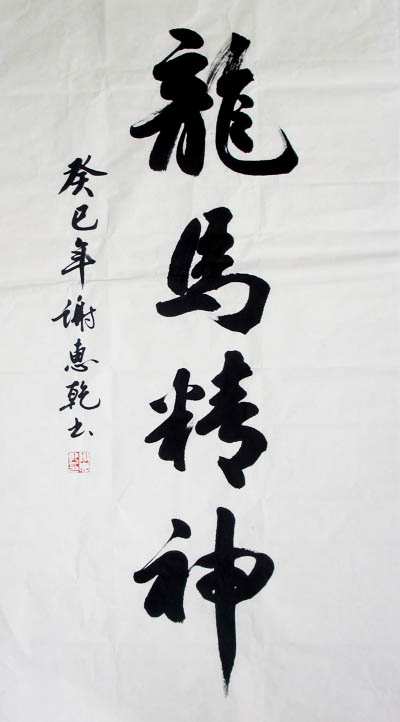 龍馬精神
癸巳年谢惠乾书